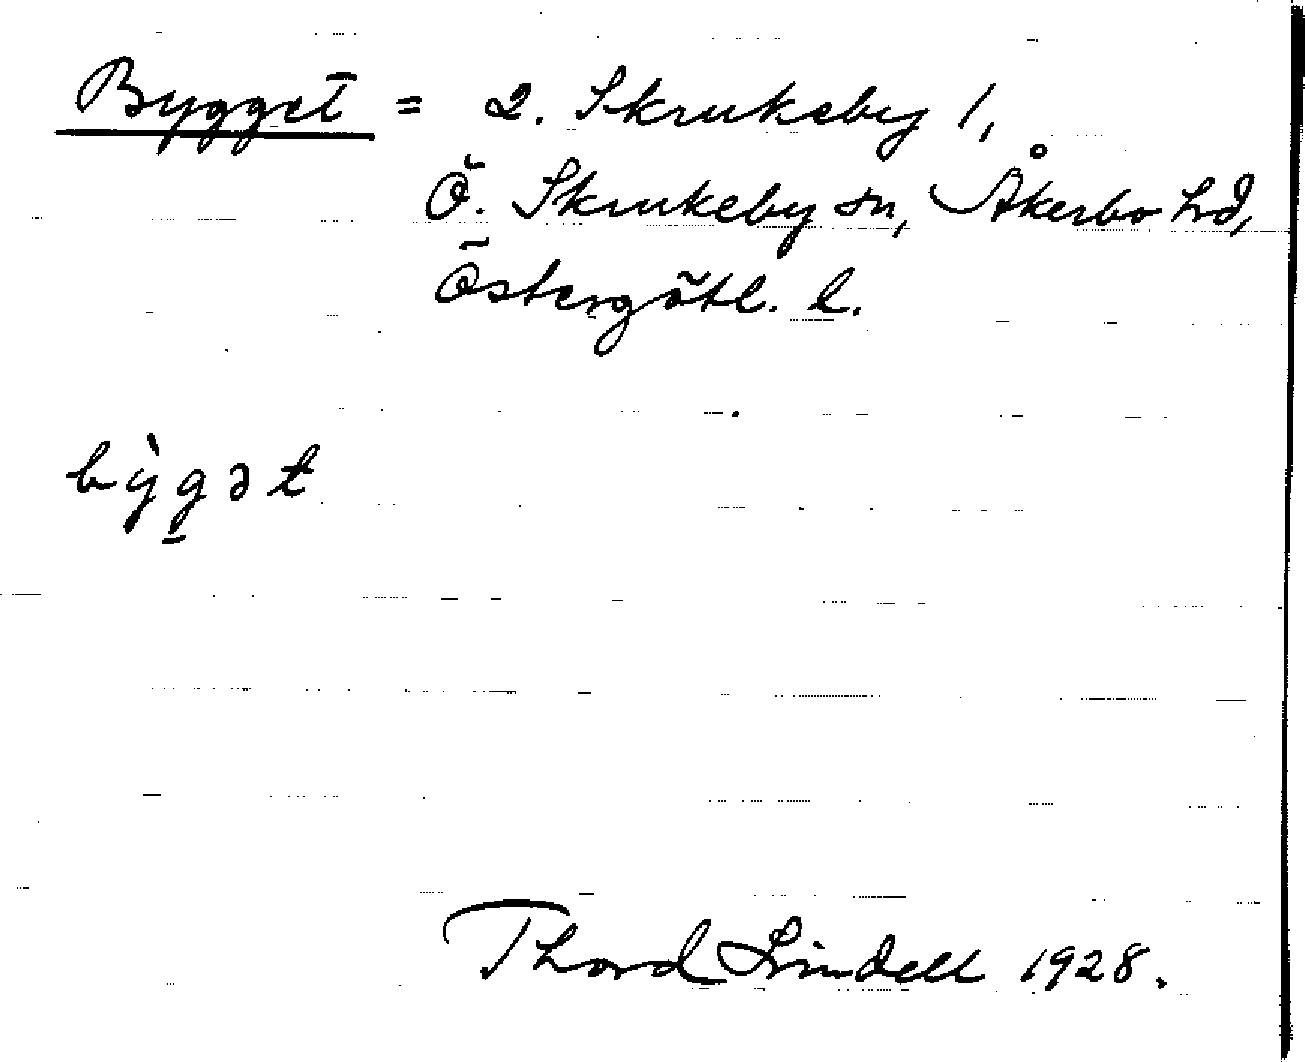 Bygget = 2. Skrukeby 1,
Ö. Skrukeby sn, Åkerbo hd,
Östergötl. l.
bỳg̱ət
Thord Lindell 1928.